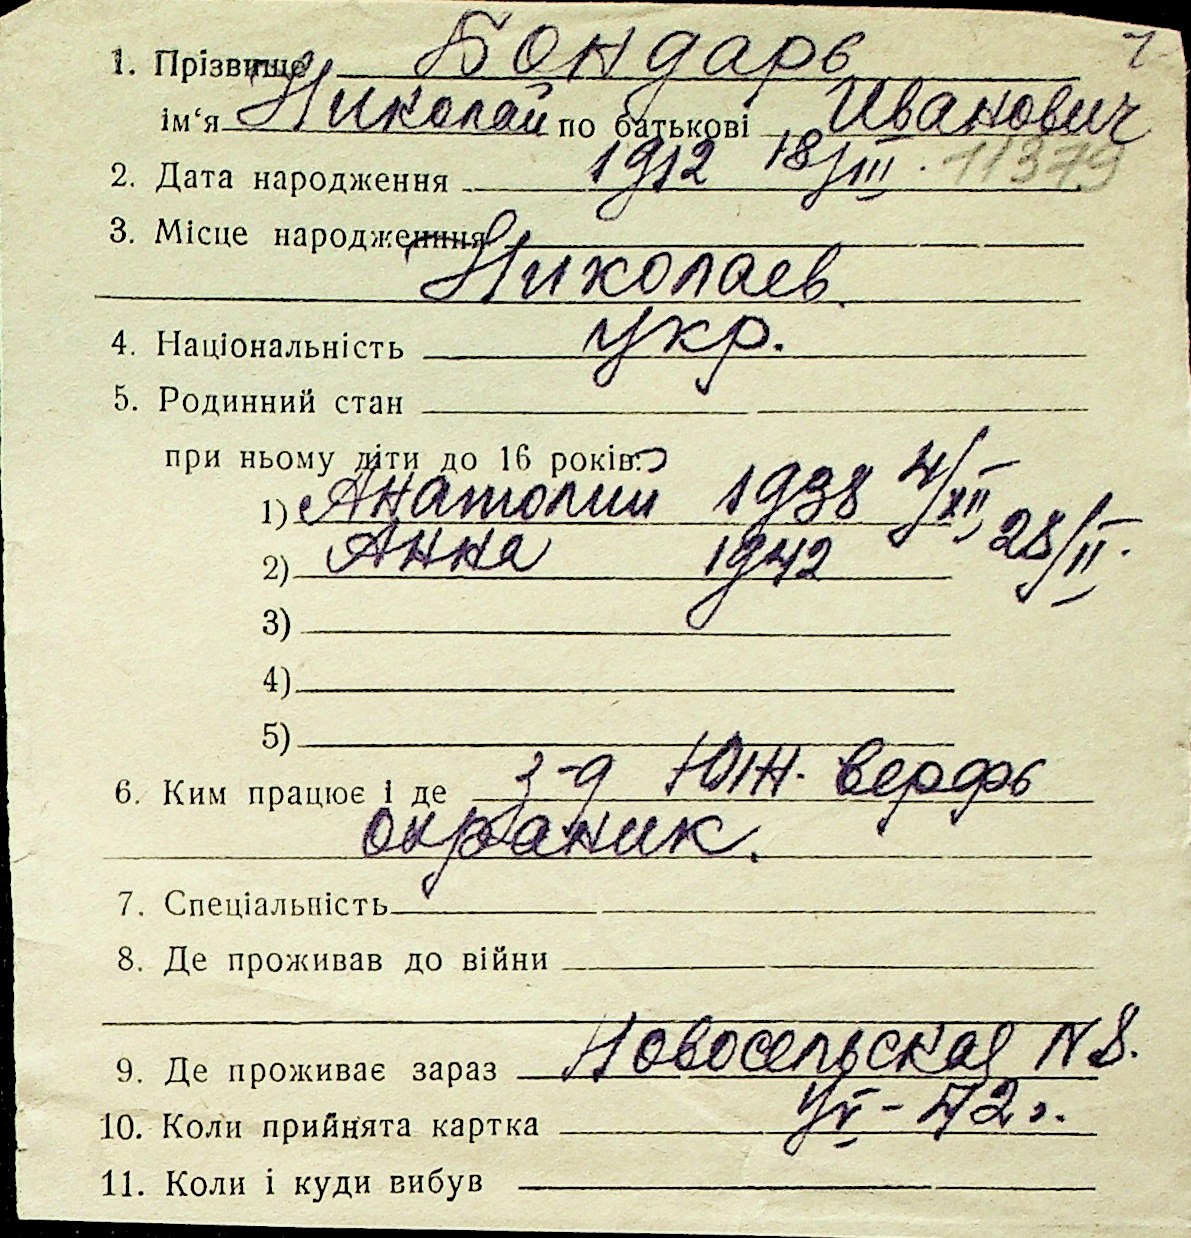 1. Прізвище Бондарь
ім‘я Николай по батькові Иванович
2. Дата народження 1912 18/III. 11379
3. Місце народження
Николаев.
4. Національність укр.
5. Родинний стан
при ньому діти до 16 років:
1) Анатолий 1938 4/XII
2) Анна 1942 28/II.
3)
4)
5)
6. Ким працює і де з-д Юж. верфь
охраник.
7. Спеціальність
8. Де проживав до війни
9. Де проживає зараз Новосельская N 8.
10. Коли прийнята картка 42 г.
11. Коли і куди вибув